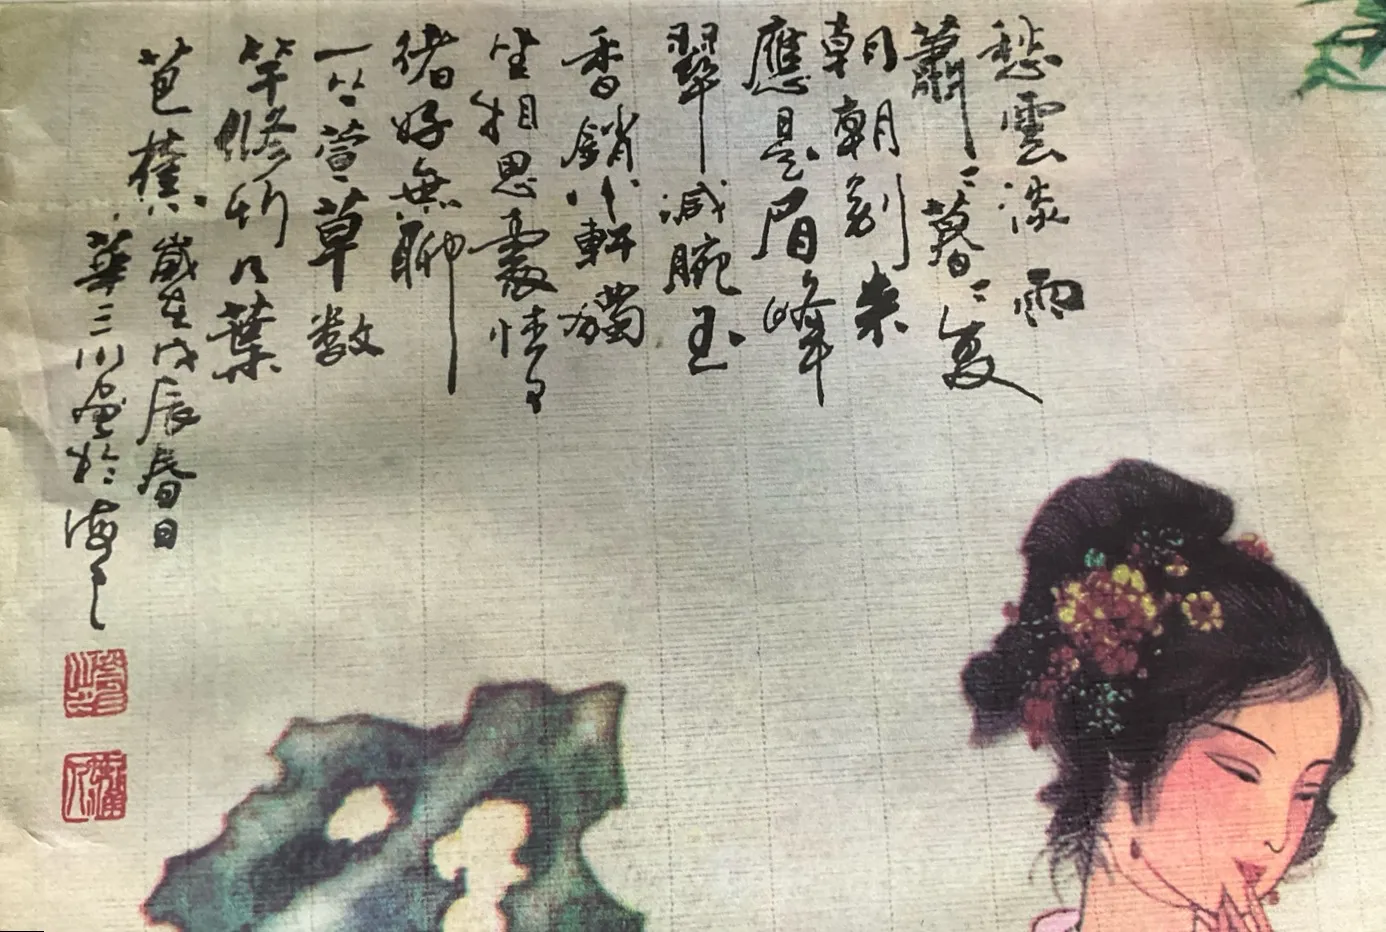 愁雲淡雨
蕭〻暮〻复
朝朝别来
應是眉峰
翠減腕玉
香銷小軒獨
坐相思處情
緒好無聊
一丛萱草数
竿修竹几葉
芭蕉 歲在戊辰春日
華三川画於海上